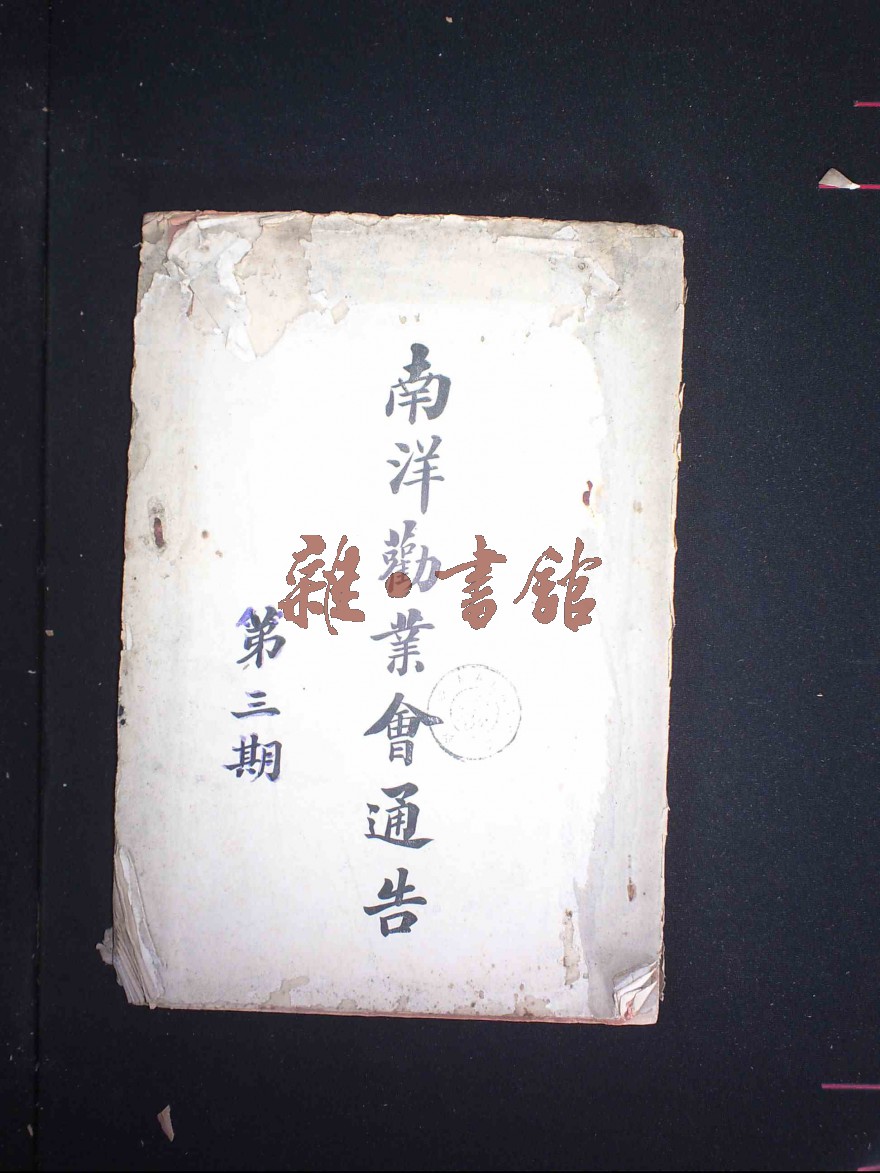 南洋勸業會通告
第三期
雜·書館